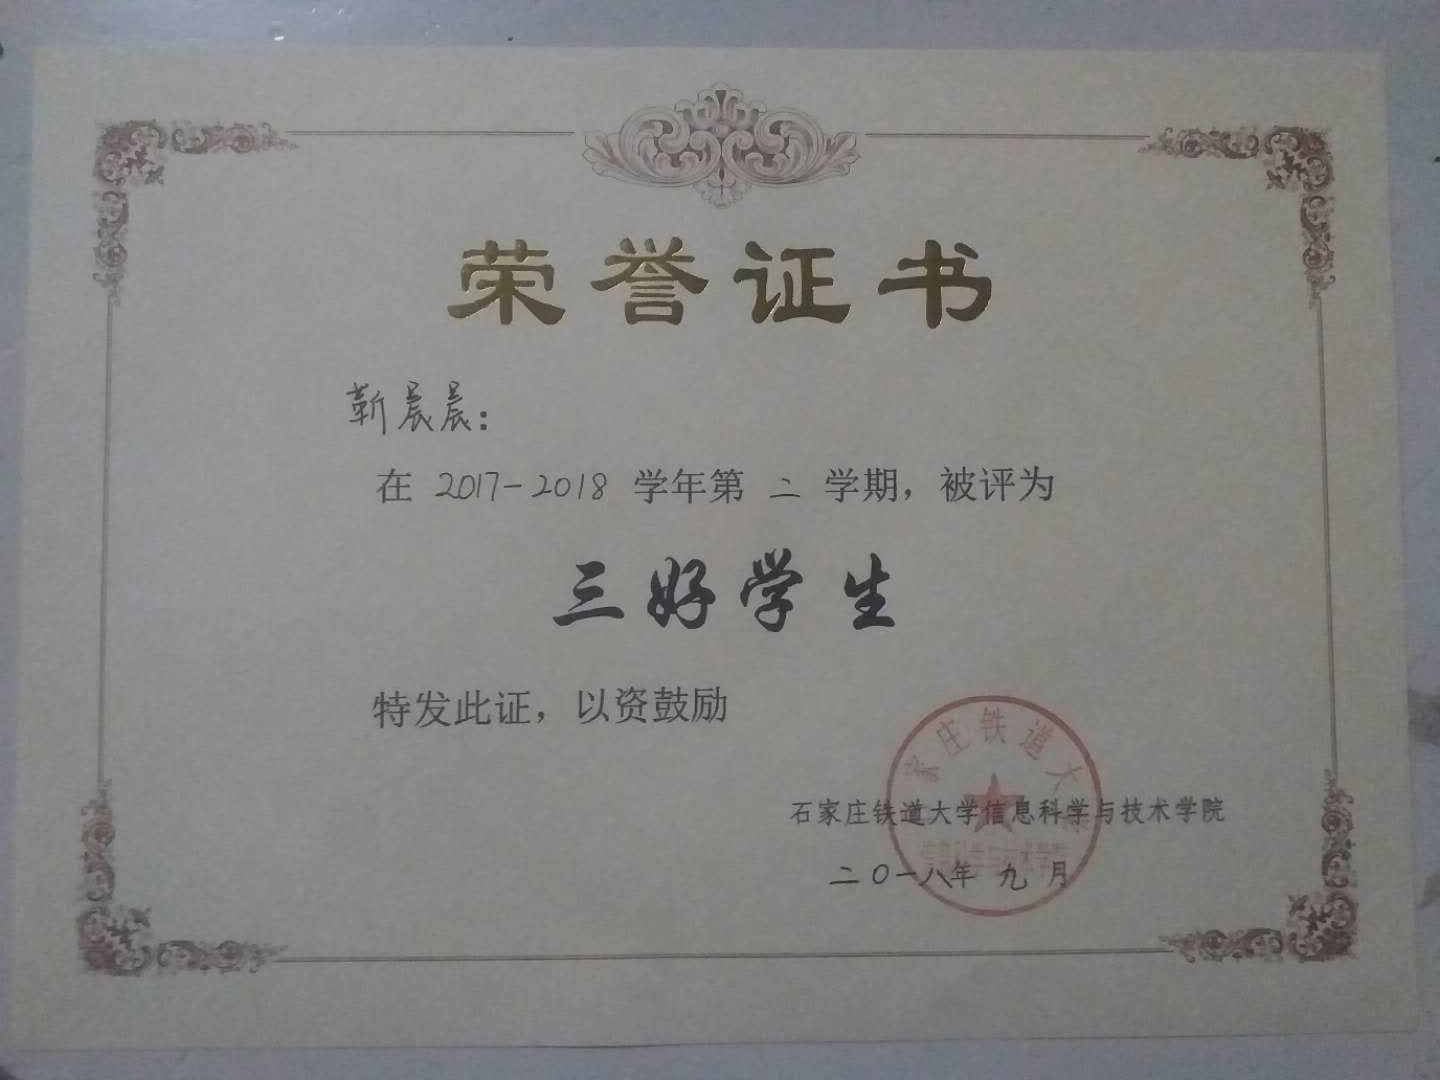 荣誉证书
靳晨晨:
在 2017-2018 学年第 二 学期，被评为
三好学生
特发此证，以资鼓励
石家庄铁道大学信息科学与技术学院
二〇一八年 九 月
家庄铁道大